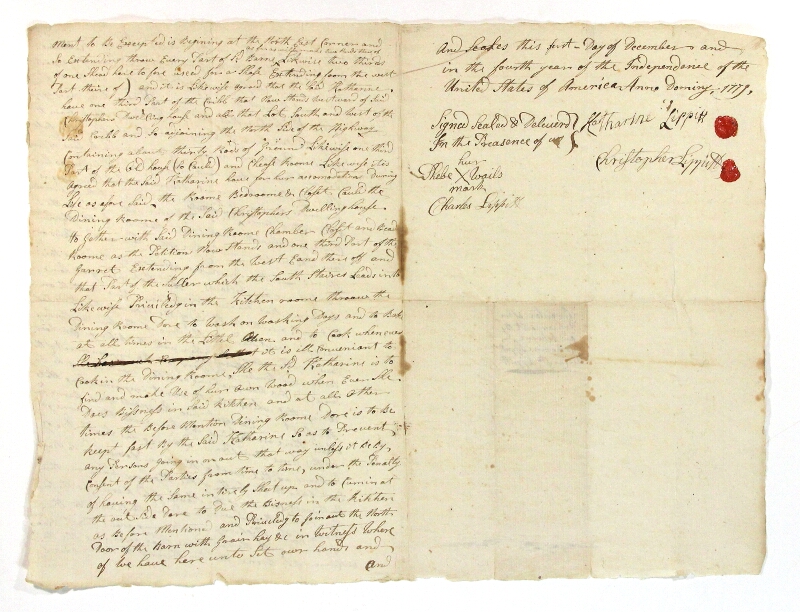 ment to Be Excepted is Begining at the North East Corner and
as far as will make two thirds thereof
So Extending throw Every Part of Sd Barn Likwise two thirds
of one Shead here to fore used for a Extending from the west
Part there of) and it is Likewise agreed that the Said Katharine
have one third Part of the Cribb that Now Stands westward of Said
Christophers Dwelling house and all that Lot South and west of the
Said Cribb and So ajoining the North Side of the Highway
Containing about thirty Rods of Ground Likewise one third
Part of the old house (So Cauld) and Cheese Roome Likewise it is
agreed that the Said Katharine have for her accomodation During
Life as afore Said the Roome Bedroome & Closet Cauld the
Dining Roome of the Said Christophers Dwelling house
to Gether with Said Dining Roome Chamber Closet and Bead
Roome as the Petition Now Stands and one third Part of the
Garrot Extending from the West Eand there off and
that Part of the Seller which the South Staires Leads into
Likewise Priviledg in the Kitchen roome throue the
Dining Roome Dore to Wash on Washing Days and to Bake
at all times in the Littel Oven and to Cook when ever
it is all Conveniant to
Cook in the Dining Roome, She the Sd Katharine is to
find and make Use of hur Own Wood when Ever She
Does Bisness in Said Kitchen and at all Other
times the Before Mention Dining Roome Dore is to Be
keept fast By the Said Katharine So as to Prevent
any Persons going in or out that way unless it Be By
Consent of the Parties from time to time, under the Penalty
of having the Same intirely Shet up and to Cum in at
the out Side Dore to Due the Bisness in the Kitchen
as Before Mentioned and Priviledg to out the North
Door of the Barn with Grain hay &c in Witness Where
of We have here unto Set our hands and
and
And Seales this furst Day of December and
in the fourth year of the Independence of the
United States of America Anno Dominy, 1779,
Signed Sealed & Deleverd
In the Preasence of
Katharine Lippitt
Christopher Lippitt
hur
Phebe X Wails
mark
Charles Lippitt